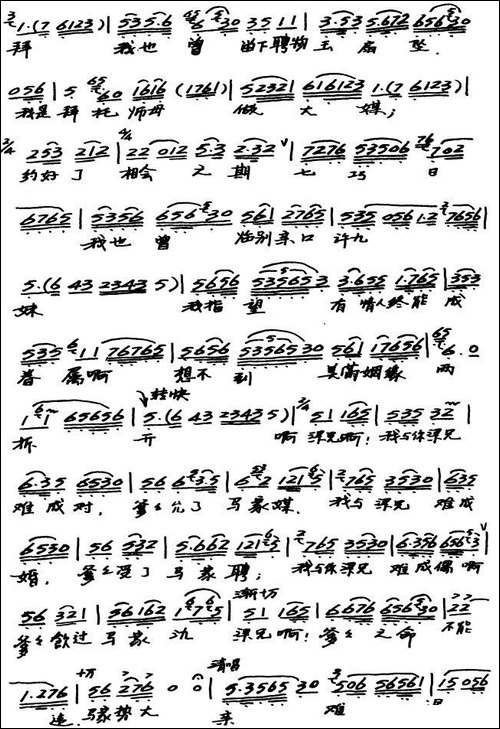 1·(7 6123)| 5353·6 6 30 35 11| 3·53 5·672 656 30
拜 我也曾 留下聘物玉扇坠.
056| 5 65 60 1616 (1761)| 52321 616123 1·(7 6123)|
我是拜托师母 做大媒;
3/4 253 212 |4/4 22 012 5·3 2·32 ∨| 7276 53506 76 702
约好了 相会之期 七巧日
6765| 5356 656 30 561 2765| 535 056 1·2 7656|
我也曾 临别亲口许九
5·(6 43 2343 5)| 5656 535653 3·655 1·765|353
妹 我指望 有情人终能成
535 6 11 76765| 5656 5356530 561 17656| 65 6·0
眷属啊 想不到 美满姻缘两
转快
1 1 65656 | 5·(6 43 2343 5)|2/4 51 165| 535 32
拆开 啊 梁兄啊! 我与你梁兄
6·35 6530| 56 6 3·5| 6 2 121 5| 765 3530|635
难成对, 爹爹允了马家媒. 我与梁兄难成
6530| 56 532| 5·662 121 5| 765 3530|6·356 656 3 ∨
婚, 爹爹受了马家聘; 我与你梁兄难成偶啊
渐切
56 321| 56162 1 7 5| 51 165| 6·676 656 30| 22
爹爹饮过马家 梁兄啊! 爹爹之命不能
清唱
1·276| 56 276 0 0| 5·3565 30 506 56561|15 056
违. 马家势大 亲难